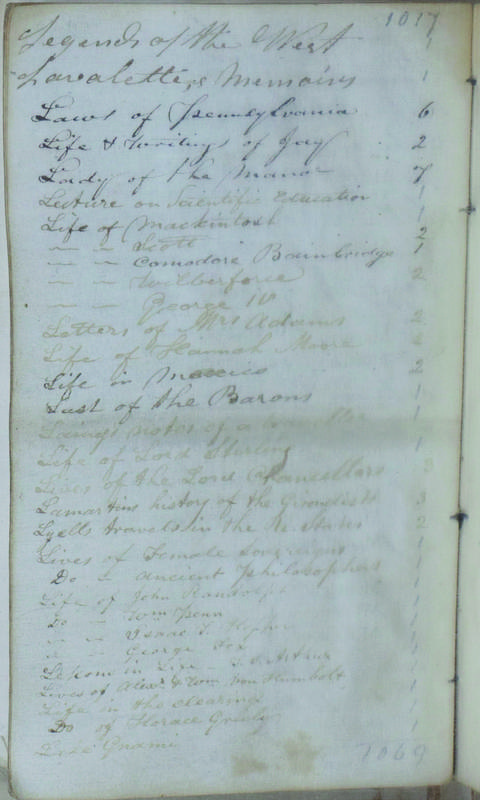 1017
Legends of the West 1
Lavalette,s Memoirs 1
Laws of Pennsylvania 6
Life & writings of Jay 2
Lady of the Manor 7
Lecture on Scientific Education 1
Life of Mackintosh 1
— — Scott 2
— — Comodore Bainbridge 1
— — Wilberforce 2
— — George IV
Letters of Mrs Adams 2
Life of Hannah Moore 2
Life in Mexico 2
Last of the Barons 1
Laings notes of a 1
Life of Lord Stirling 1
Lives of the Lord Chancellors 3
Lamartins history of the Girondists 3
Lyells travels in the U States 2
Lives of Female Sovereigns 1
Do — Ancient Philosophers 1
Life of John Randolph 1
Do — Wm Penn 1
" — Isaac T. Hopper 1
" — George Fox 1
Lessons in Life — T. S. Arthur 1
Lives of Alexr & Wm Von Humbolt 1
Life in the clearings 1
Do of Horace Greely 1
1069